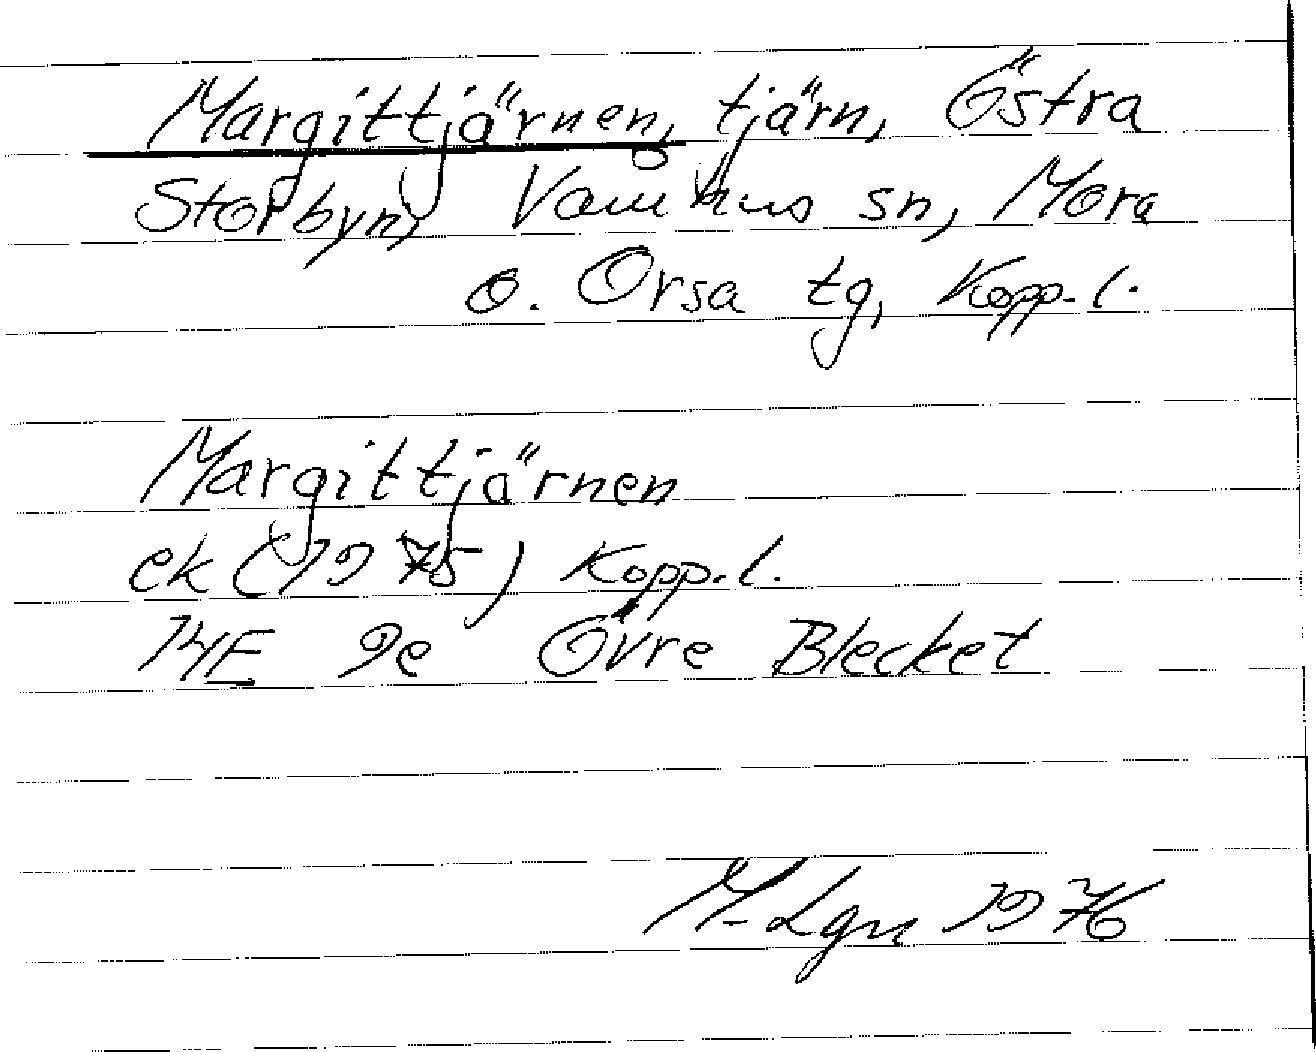 Margittjärnen, tjärn, Östra
Storbyn, Våmhus sn, Mora
o. Orsa tg, Kopp. l.
Margittjärnen
ek (1975) Kopp. l.
14E 9e Övre Blecket
M-Lgn 1976